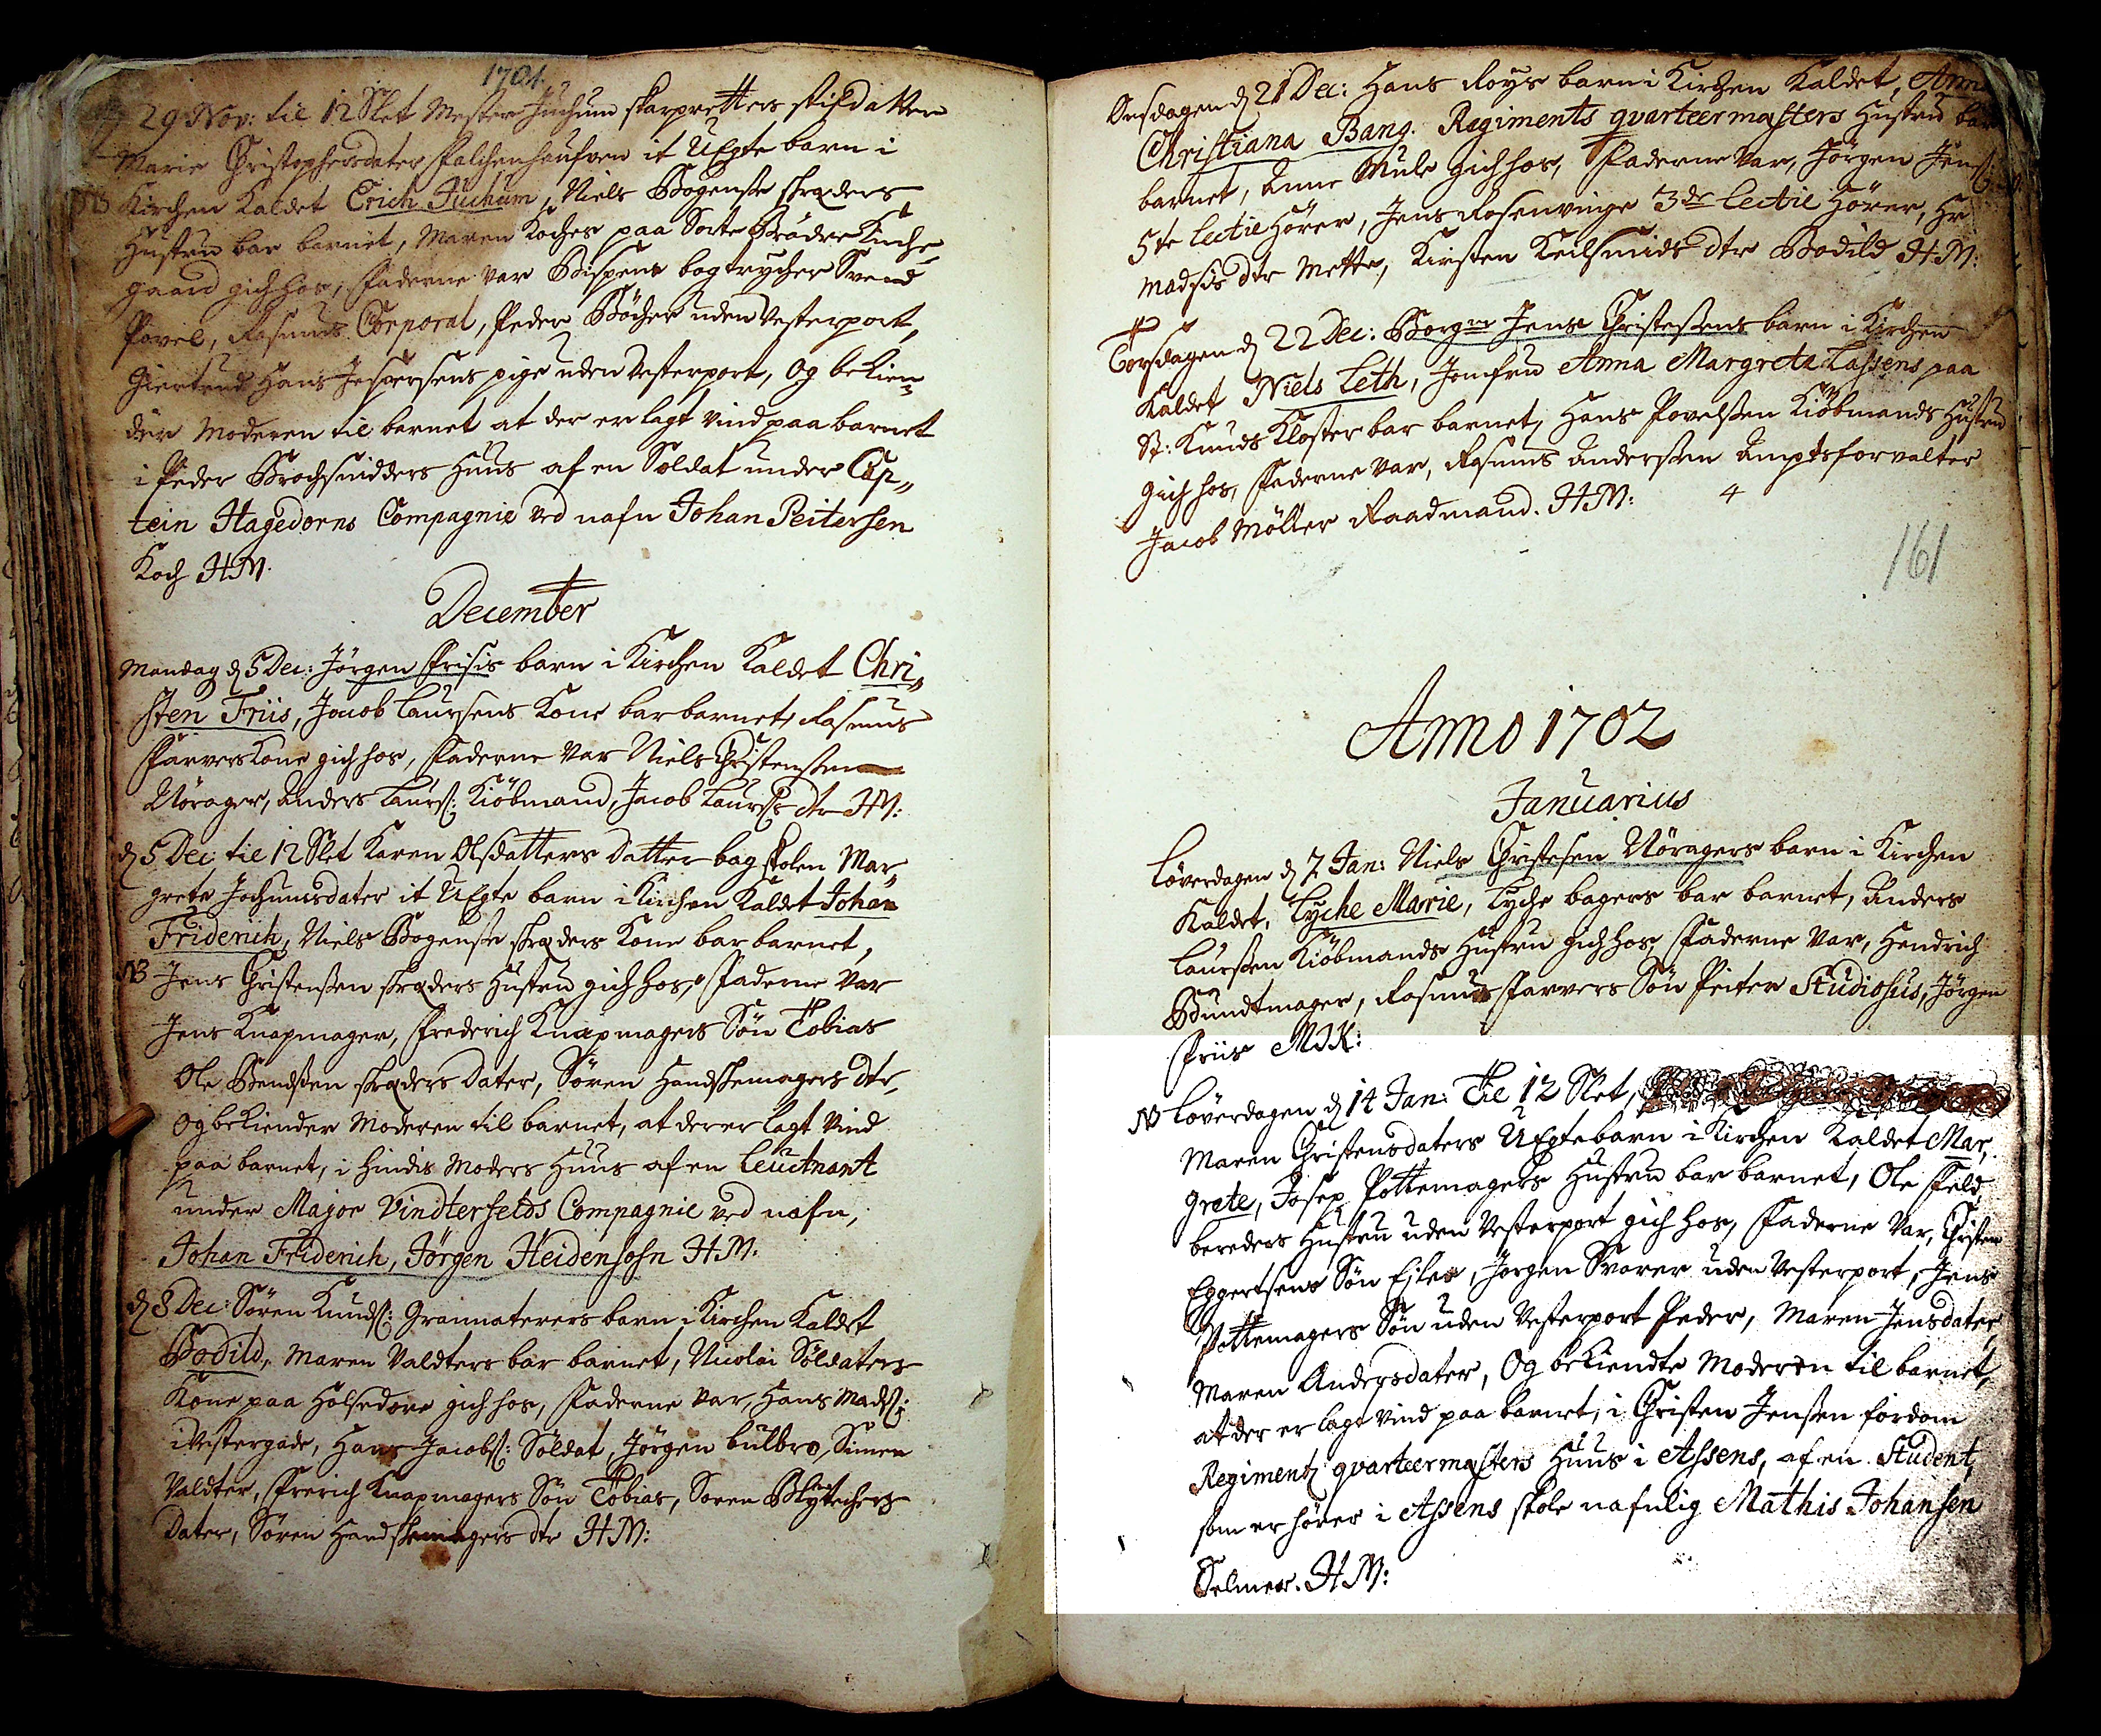 1701.
29 Nov: til 12 Slet Mester Juchum skarpretters stifdatter
Marie Christophersdater Falchenhaufven it UEgte barn i
NB Kirchen Kaldet Erich Juchum, Niels Bogense skræders
Hustru bar barnet, Maren Koches paa Sorte Brødre Kirche
gaard gich hos, Faderne var Bispens bogtrycher Svend
Povel, Rasmus Corporal, Peder Bøcher uden Vesterport,
Giertrud Hans Jespersens pige uden Vesterport, Og bekien-
der Moderen til barnet at der er lagt vind paa barnet
i Peder Brochsmidders Huus af en Soldat under Cap„
tein Hagedorns Compagnie ved nafn Johan Peitersen
Koch HM.
December
Mandag d 5 Dec: Jørgen Frisis barn i Kirchen Kaldet Chri„
sten Friis, Jacob Laursens Kone bar barnet, Rasmus
Farvers Kone gich hos, Faderne var Niels Christensen
Nørager, Anders Laurs: Kiøbmand, Jacob Laurses dtr HM:
d 5 Dec til 12 Slet Karen Olsdatters datter bag skolen Mar„
grete Jochumsdater it UEgte barn i Kirchen Kaldet Johan
Friderich, Niels Bogense skræders Kone bar barnet,
NB Jens Christensen skræders Hustru gich hos, Faderne var
Jens Knapmager, Frederich Knapmagers Søn Tobias
Ole Bendsen skræders dater, Søren Handskemagers dtr,
Og bekiender Moderen til barnet, at der er lagt vind
paa barnet, i hindis Moders Huus af en Leutnant
under Major Vindterfelds Compagnie ved nafn,
Johan Friderich, Jørgen Heidensohn HM:
d 8 Dec: Søren Knuds: Grannaterers barn i Kirchen Kaldet
Bodild, Maren Valdters bar barnet, Nicolai Soldaters
Kone paa Holsedore gich hos, Faderne var, Hans Mads:
i Vestergade, Hans Jacobs: Soldat, Jørgen bulbro, Simen
Valdter, Frerich Knapmagers Søn Tobias, Søren Blytechers
dater, Søren Handskemagers dtr HM:
Onsdagen d 21 Dec: Hans Roys barn i Kirchen Kaldet, Anna
Christiana Bang. Regiments qvarteermesters Hustru bar
barnet, Anne Mule gich hos, Faderne var, Jørgen Jens:
5te Lectie Hører, Jens Rosenvinge 3de Lectie Hører, Hr
Madses dtr Mette, Kirsten Keilsmids dtr Bodild HM:
Torsdagen d 22 Dec: Borgmr Jens Christesens barn i Kirchen
Kaldet Niels Leth, Jomfru Anna Margrete Lassens paa
St: Knuds Kloster bar barnet, Hans Povelsen Kiøbmands Hustru
gich hos, Faderne var, Rasmus Andersen Amptsforvalter
Jacob Møller Raadmand. HM: 4
161
Anno 1702
Januarius
Løverdagen d 7 Jan: Niels Christesen Nøragers barn i Kirchen
Kaldet, Lyche Marie, Lyche bagers bar barnet, Anders
Laursen Kiøbmands Hustru gich hos, Faderne var, Hendrich
Bundtmager, Rasmus Farvers Søn Peiter Studiosus, Jørgen
Friis MIK:
NB Løverdagen d 14 Jan: Til 12 Slet,
Maren Christensdaters UEgte barn i Kirchen Kaldet Mar„
grete, Josep Pottemagers Hustru bar barnet, Ole Feld
bereders Hustru uden Vesterport gich hos, Faderne var, Christen
Eggertsens Søn Eiler, Jørgen Svarer uden Vesterport, Jens
Pottemagers Søn uden Vesterport Peder, Maren Jensdater,
Maren Andersdater, Og bekiendte Moderen til barnet,
at der er lagt vind paa barnet, i Christen Jensen fordom
Regimentz qvarteermesters Huus i Assens, af en Student,
som er hører i Assens skole nafnlig Mathis Johansen
Selmer. HM: